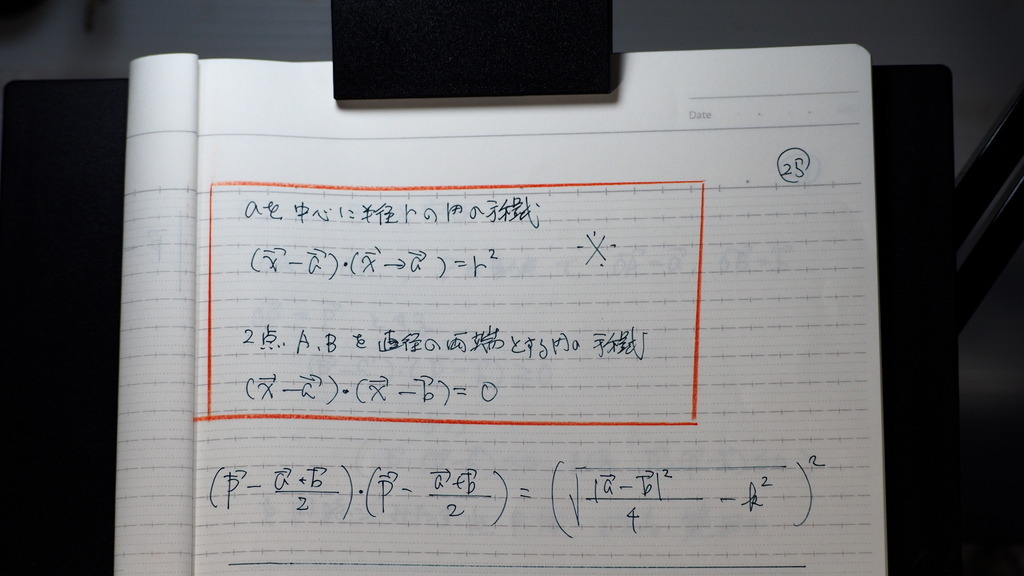 Date
㉕
aを中心に半径rの円の方程式
(x⃗-a⃗)・(x⃗-a⃗)=r²
2点、A、Bを直径の両端とする円の方程式
(x⃗-a⃗)・(x⃗-b⃗)=0
(p⃗ - (a⃗+b⃗)/2)・(p⃗ - (a⃗+b⃗)/2) = (√(|a⃗-b⃗|²/4 - k²))²